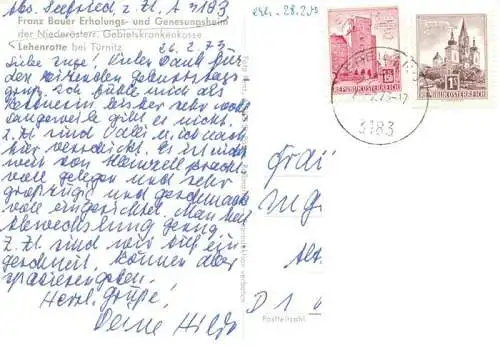 Abs. Seefried z. Zt. A 3183
Franz Bauer Erholungs- und Genesungsheim
der Niederösterr. Gebietskrankenkasse
Lehenrotte bei Türnitz
26.2.73
Liebe Inge! Vielen Dank für
den Geburtstags
gruß. Ich fühle mich als
sehr wohl
Langeweile gibt es nicht.
z. Zt. sind Valli u. ich nach
hier verschickt. Es ist nicht
weit von Hainzell pracht
voll gelegen und sehr
großzügig und geschmack
voll eingerichtet. Man hat
Abwechslung genug.
Z. Zt. sind wir voll ein
geschneit, können aber
spazierengehen.
Herzl. Grüße!
Deine Hilde
erh. 28.2.
REPUBLIK ÖSTERREICH
REPUBLIK ÖSTERREICH
1S
3183
Frau
Inge
Alt
D 1
Postleitzahl